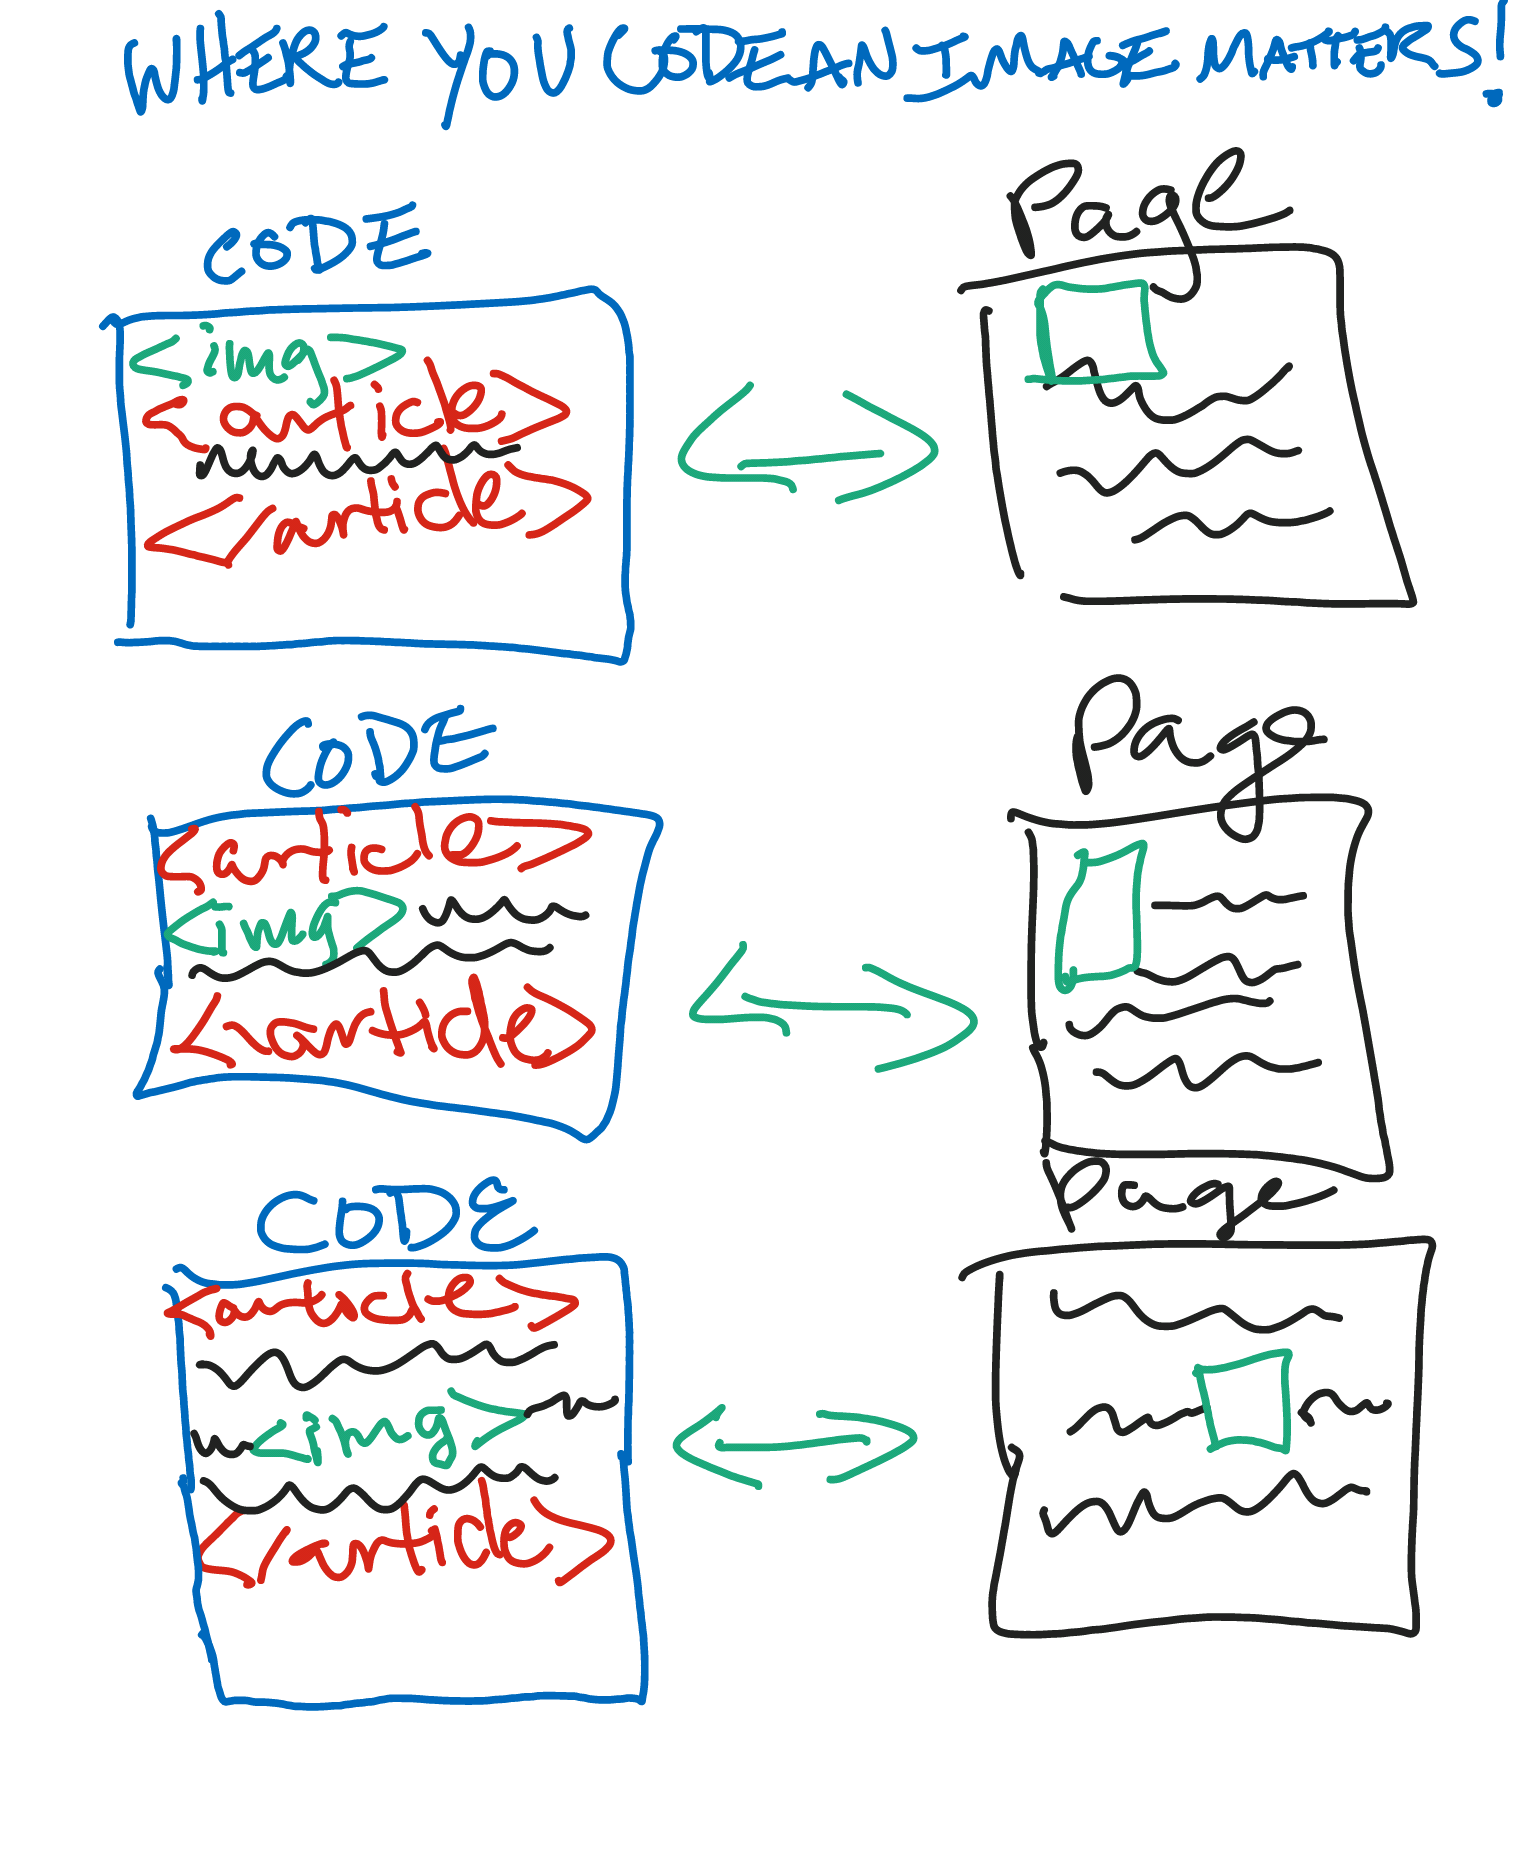 WHERE YOU CODE AN IMAGE MATTERS!
CODE
Page
<img>
<article>
</article>
CODE
Page
<article>
<img>
<article>
CODE
Page
<article>
<img>
</article>